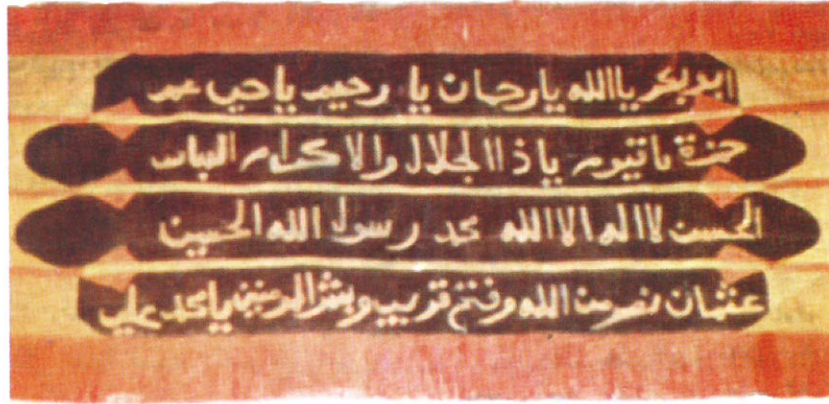 ابو بكر يا الله يا رحمان يا رحيم يا حي عمر
حمزة يا قيوم يا ذا الجلال والاكرام العباس
الحسن لا اله الا الله محمد رسول الله الحسين
عثمان نصر من الله وفتح قريب وبشر المؤمنين يا محمد علي